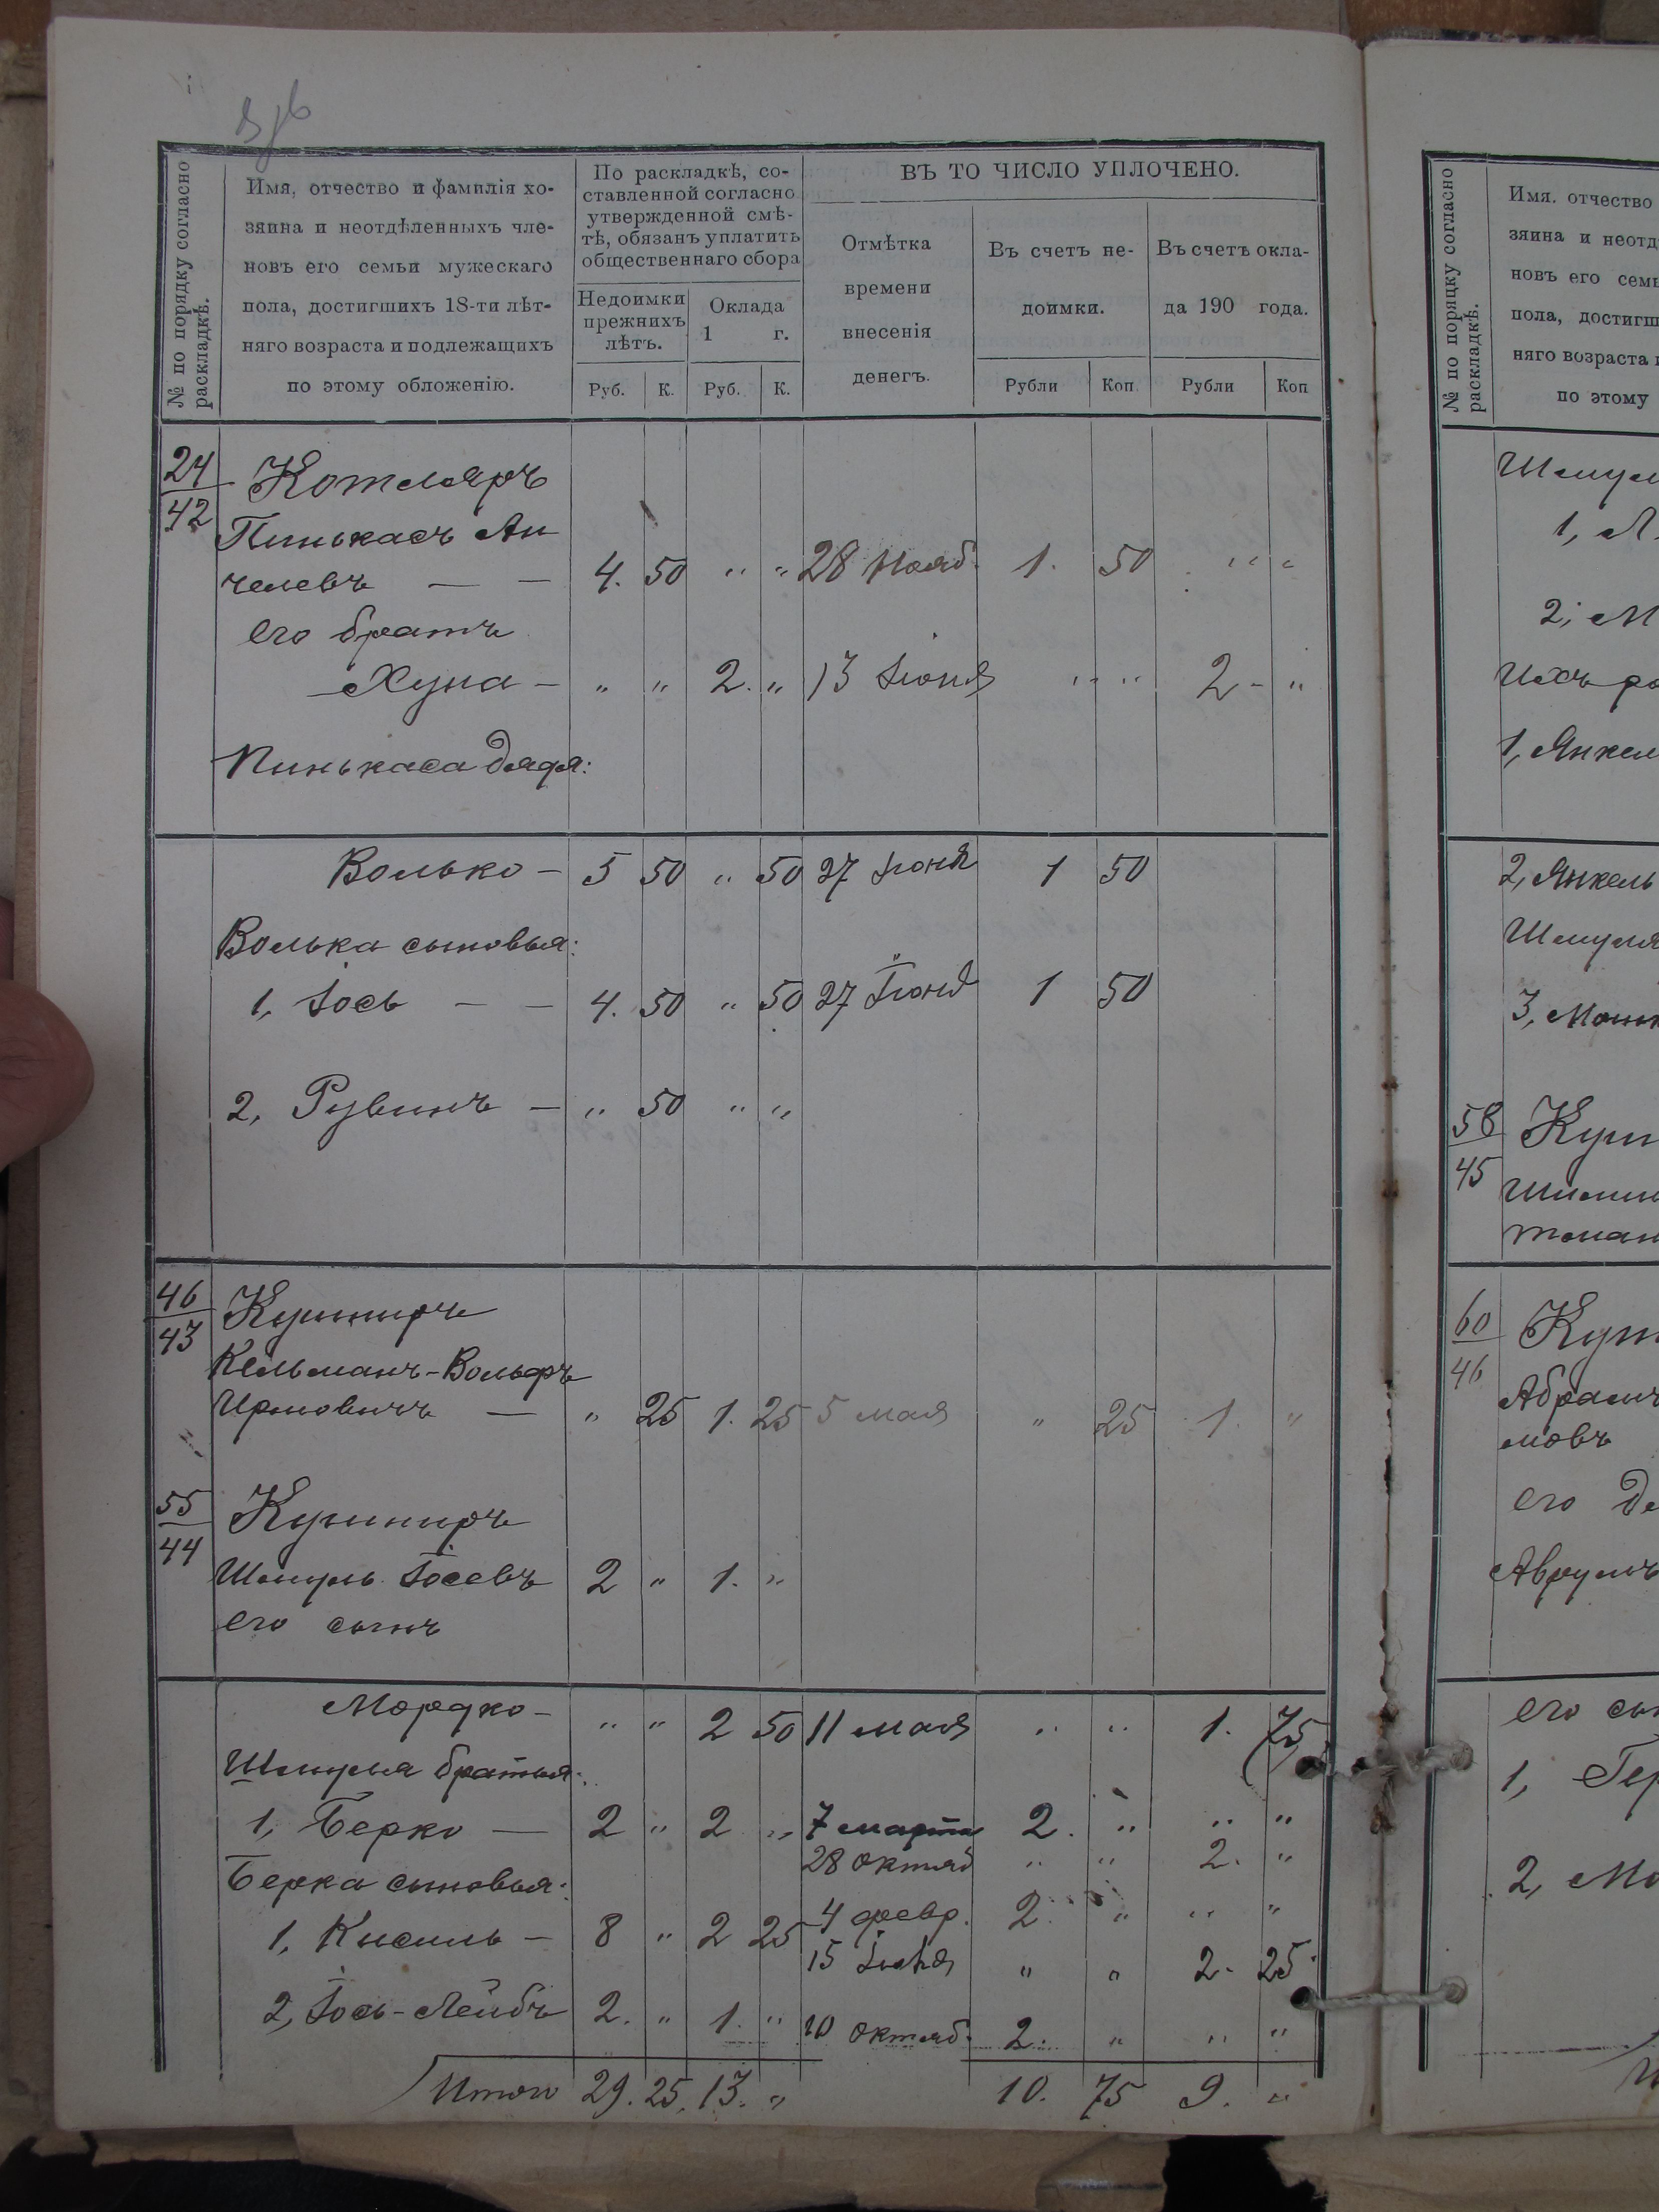 № по порядку согласно раскладкѣ.
Имя, отчество и фамилія хо-
зяина и неотдѣленныхъ чле-
новъ его семьи мужескаго
пола, достигшихъ 18-ти лѣт-
няго возраста и подлежащихъ
по этому обложенію.
По раскладкѣ, со-
ставленной согласно
утвержденной смѣ-
тѣ, обязанъ уплатить
общественнаго сбора
Недоимки
прежнихъ
лѣтъ.
Оклада
1 г.
Руб. К. Руб. К.
ВЪ ТО ЧИСЛО УПЛОЧЕНО.
Отмѣтка
времени
внесенія
денегъ.
Въ счетъ не-
доимки.
Въ счетъ окла-
да 190 года.
Рубли Коп. Рубли Коп
24/42 Котляръ
Пинькасъ Ан
челевъ — — 4. 50 " " 28 Нояб. 1. 50 " "
его братъ
Хуна — " " 2. " 13 Іюня " " 2 - "
Пинькаса дядя:
Волько — 5 50 " 50 27 Іюня 1 50
Волька сыновья:
1, Іось — — 4. 50 " 50 27 Іюня 1 50
2, Рувинъ — " 50 " "
46/43 Кушниръ
Кельманъ-Вольфъ
— " 25 1. 25 5 мая " 25 1. "
55/44 Кушниръ
Шмуль Іосевъ 2 " 1. "
его сынъ
Мордко — " " 2 50 11 мая " " 1. 75
Шмуля братья:
1, Берко — 2 " 2 " 7 марта 2. " " "
28 Октяб " " 2. "
Берка сыновья:
1, Кисиль — 8 " 2 25 4 февр. 2. " " "
15 " " 2 - 25
2, Іось-Лейбъ 2. " 1. " 10 Октяб. 2. " " "
Итого 29. 25. 13. " 10. 75 9. "
№ по порядку согласно раскладкѣ.
Имя. отчество
зяина и неотд
новъ его семь
пола, достигш
няго возраста и
по этому
Шмул
1, Л
2, М
Ихъ ро
1, Янкел
2, Янкель
Шмуля
3, Мошк
58/45 Куш
60/46 Куш
Абрамъ
мовъ
его
Аврумъ
его сы
1, Гер
2, Мо